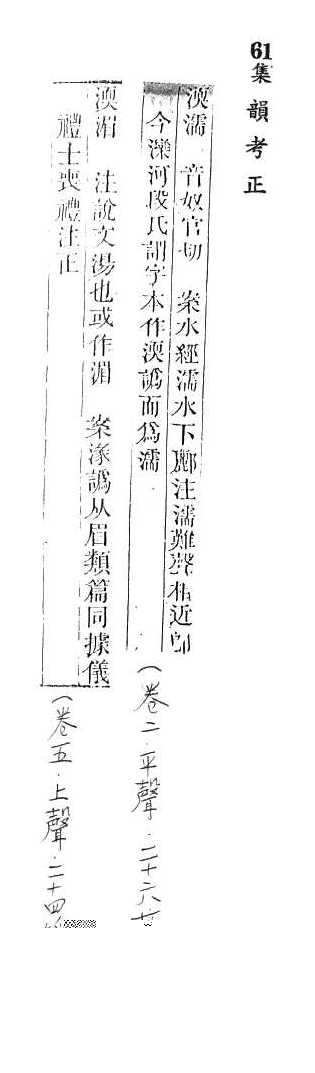 61集韻考正
渜濡 音奴官切 案水經濡水下酈注濡難聲相近卽
今灤河段氏謂字本作渜譌而爲濡
(卷二·平聲·二十六
渜湄 注說文湯也或作湄 案湪譌从眉類篇同據儀
禮士喪禮注正
(卷五·上聲·二十四